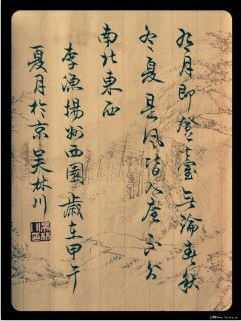 有月即登臺無論春秋
冬夏是風皆入座不分
南北東西
李漁揚州西園歲在甲午
夏月於京吴林川